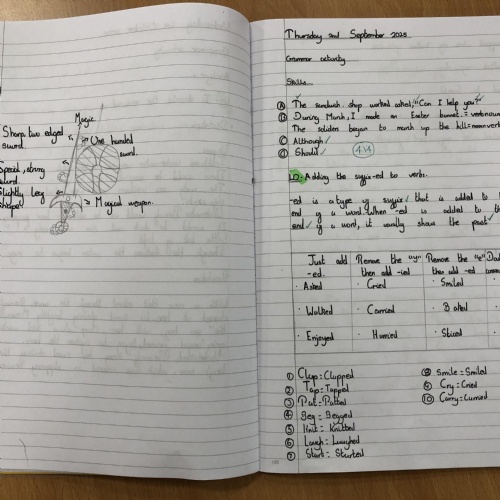 Magic.
Sharp two edged
sword.
One handed
sword.
Special, strong
sword.
Slightly leg
shape
Magical weapon.
Thursday 2nd September 2025
Grammar activity
Skills
A The sandwich shop worked asked, "Can I help you?"
B During March, I made an Easter bunnet. = verb noun
The soldiers began to march up the hill = noun verb
C Although
D Should
4/4
LO- Adding the suffix -ed to verbs.
-ed is a type of suffix that is added to the
end of a word. When -ed is added to the
end of a word, it usually shows the past
Just add
-ed.
Remove the "y"
then add -ied
Remove the "e"
then add -ed
· Asked
· Cried
· Smiled
· Walked
· Carried
· Baked
· Enjoyed
· Hurried
1 Clap = Clapped
2 Tap = Tapped
3 Pat = Patted
4 Beg = Begged
5 Knit = Knitted
6 Laugh = Laughed
7 Start = Started
8 Smile = Smiled
9 Cry = Cried
10 Carry = Carried